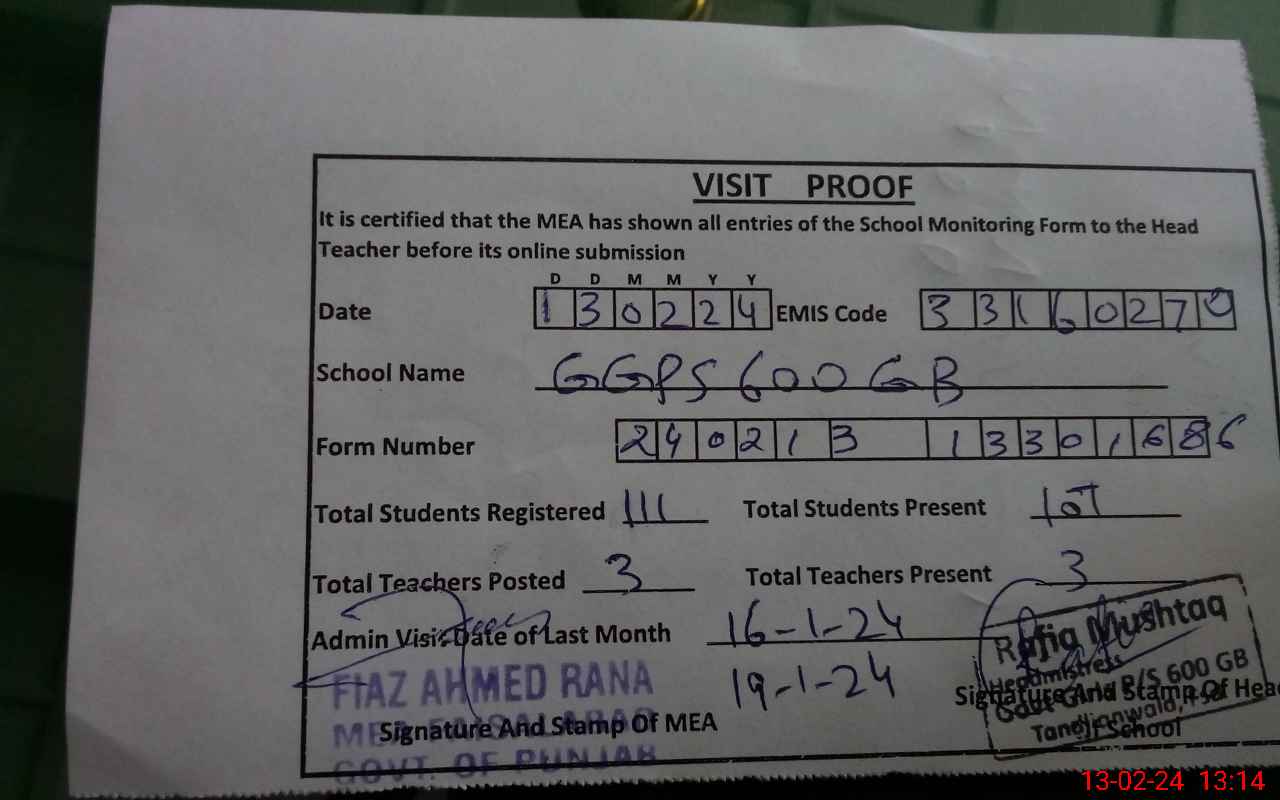 VISIT PROOF
It is certified that the MEA has shown all entries of the School Monitoring Form to the Head
Teacher before its online submission
D D M M Y Y
Date 1 3 0 2 2 4 EMIS Code 3 3 1 6 0 2 7 0
School Name GGPS 600 GB
Form Number 2 4 0 2 1 3 1 3 3 0 1 6 8 6
Total Students Registered 111 Total Students Present 107
Total Teachers Posted 3 Total Teachers Present 3
Admin Visit Date of Last Month 16-1-24
19-1-24
FIAZ AHMED RANA
MEA FAISALABAD
GOVT. OF PUNJAB
Signature And Stamp Of MEA
Rafia Mushtaq
Headmistress
Govt Girls P/S 600 GB
Tandlianwala, FSD
Signature And Stamp Of Head
School
13-02-24 13:14